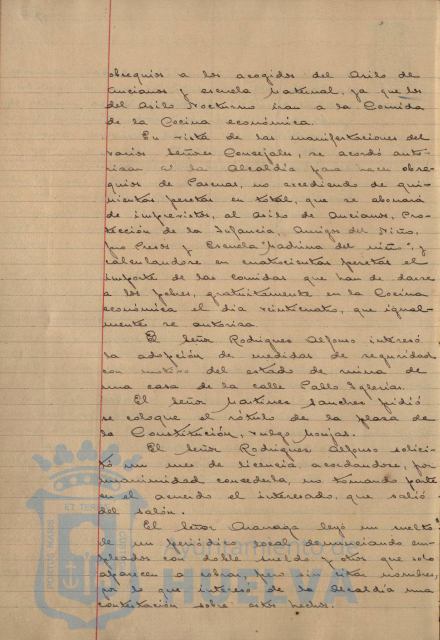 obsequios a los acogidos del Asilo de
Ancianos y escuela Maternal, ya que los
del Asilo Nocturno iran a la Comida
de la Cocina económica.
En vista de las manifestaciones del
varios Señores Concejales, se acordó auto-
rizar a la Alcaldía para hacer obse-
quios de Pascuas, no excediendo de qui-
nientas pesetas en total, que se abonará
de imprevistos, al Asilo de Ancianos, Pro-
tección de la Infancia, Amigos del Niño,
pro Presos y Escuela "Madrina del niño", y
calculandose en cuatrocientas pesetas el
importe de las comidas que han de darse
a los pobres, gratuitamente en la Cocina
económica el dia veinticuatro, que igual-
mente se autoriza.
El Señor Rodriguez Alfonso interesó
la adopción de medidas de seguridad
con motivo del estado de ruina de
una casa de la calle Pablo Iglesias.
El Señor Martinez Sanchez pidió
se coloque el rótulo de la plaza de
la Constitución, vulgo Monjas.
El Señor Rodriguez Alfonso solici-
tó un mes de licencia, acordandose, por
unanimidad concederla, no tomando parte
en el acuerdo el interesado, que salió
del salón.
El Señor leyó un suelto
de un periódico local denunciando em-
pleados con doble sueldo y otros que solo
aparecen a cobrar, pero sin citar nombres,
por lo que interesó de la Alcaldía una
contestación sobre estos hechos.
PORTUS MARIS ET TERRAE
Ayuntamiento de
HUELVA